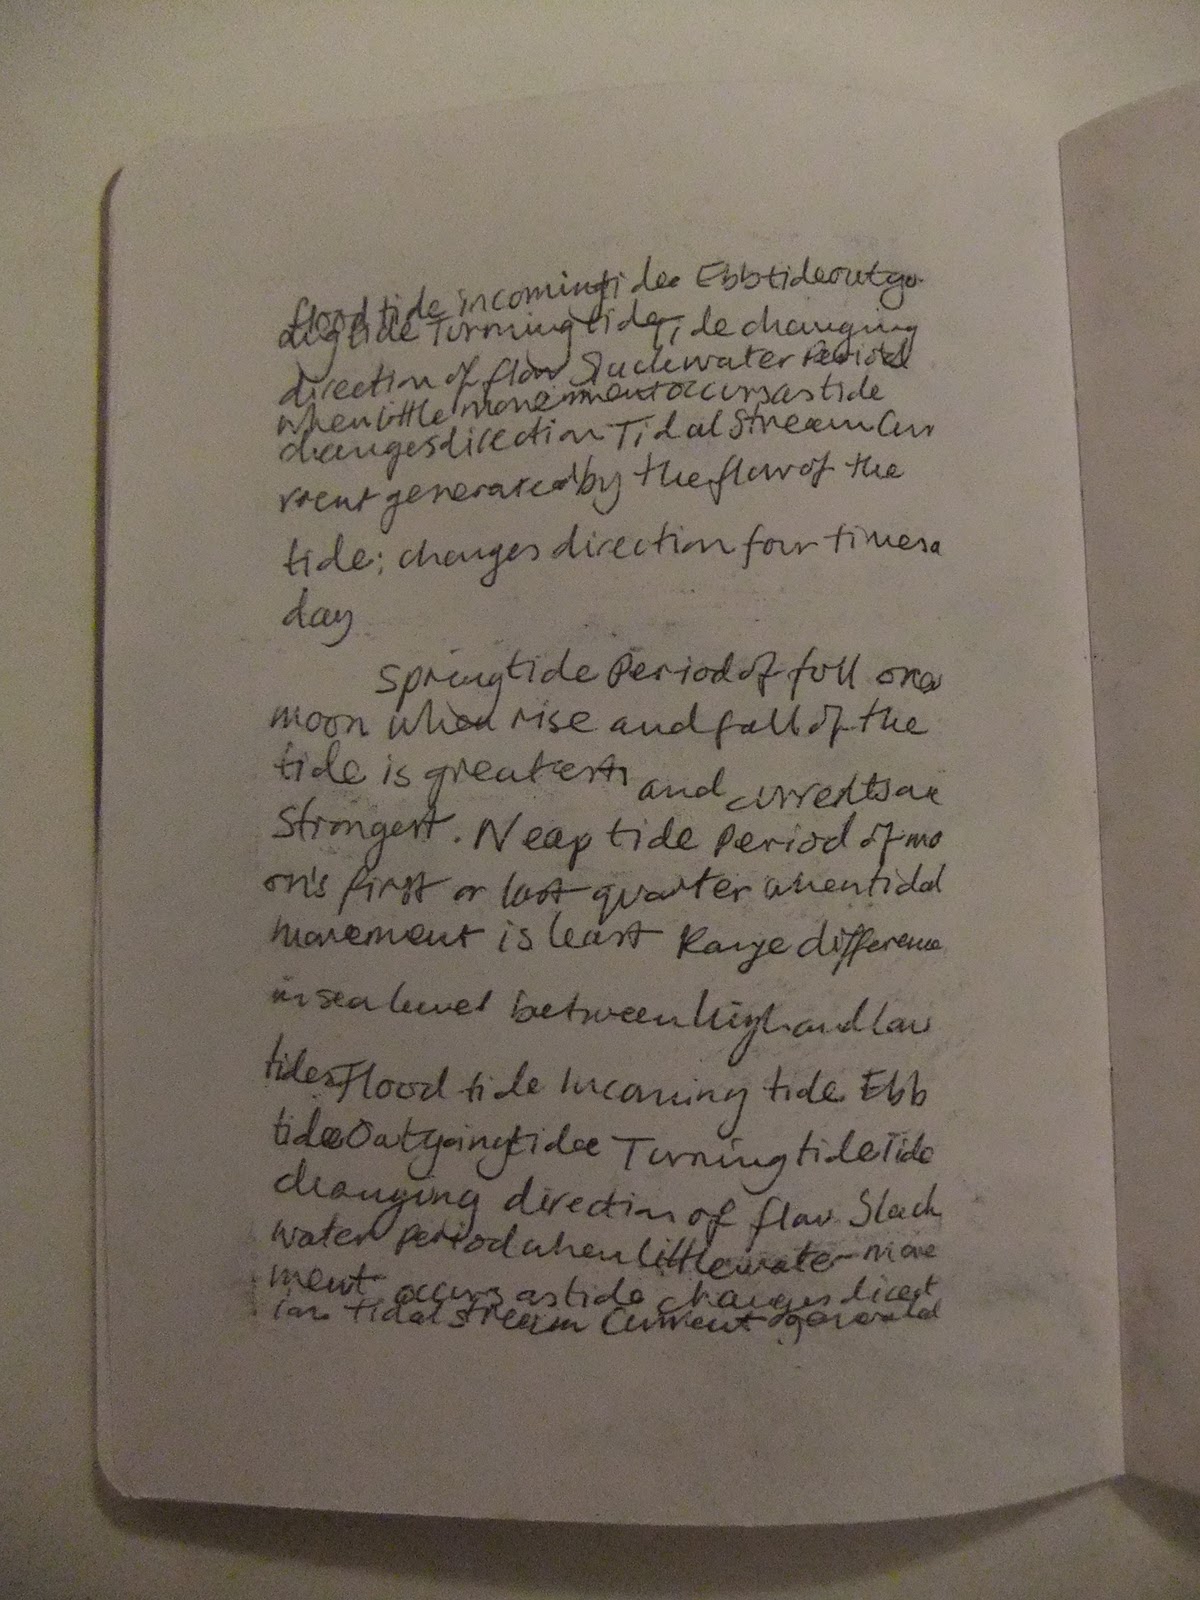 flood tide incoming tide Ebb tide outgo
ing tide Turning tide Tide changing
direction of flow Slack water Period
when little movement occurs as tide
changes direction Tidal Stream Cur
rent generated by the flow of the
tide; changes direction four times a
day
Spring tide Period of full
moon when rise and fall of the
tide is greatest and currents are
Strongest. Neap tide Period of mo
on's first or last quarter when tidal
movement is least Range difference
in sea level between high and low
tides Flood tide Incoming tide Ebb
tide Outgoing tide Turning tide Tide
changing direction of flow Slack
water Period when little water move
ment occurs as tide changes direct
ion tidal stream Current generated